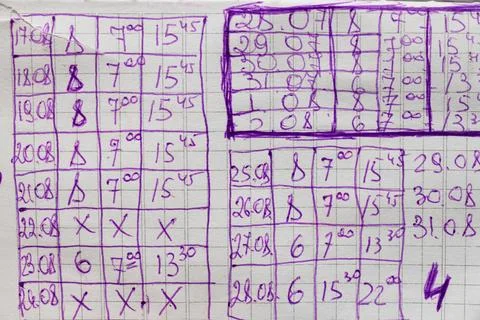 17.08 8 7⁰⁰ 15⁴⁵
18.08 8 7⁰⁰ 15⁴⁵
19.08 8 7⁰⁰ 15⁴⁵
20.08 8 7⁰⁰ 15⁴⁵
21.08 8 7⁰⁰ 15⁴⁵
22.08 X X X
23.08 6 7⁰⁰ 13³⁰
24.08 X X X
28.07 8 7⁰⁰ 15⁴
29 07 8 7⁰⁰ 15⁴
30 07 8 7⁰⁰ 15
31 07 8 7⁰⁰ 13
1 08 8 7⁰⁰ 15
08 6 7⁰⁰ 13³
25.08 8 7⁰⁰ 15⁴⁵
26.08 8 7⁰⁰ 15⁴⁵
27.08 6 7⁰⁰ 13³⁰
28.08. 6 15³⁰ 22⁰⁰
29.08
30.08
31.08
4